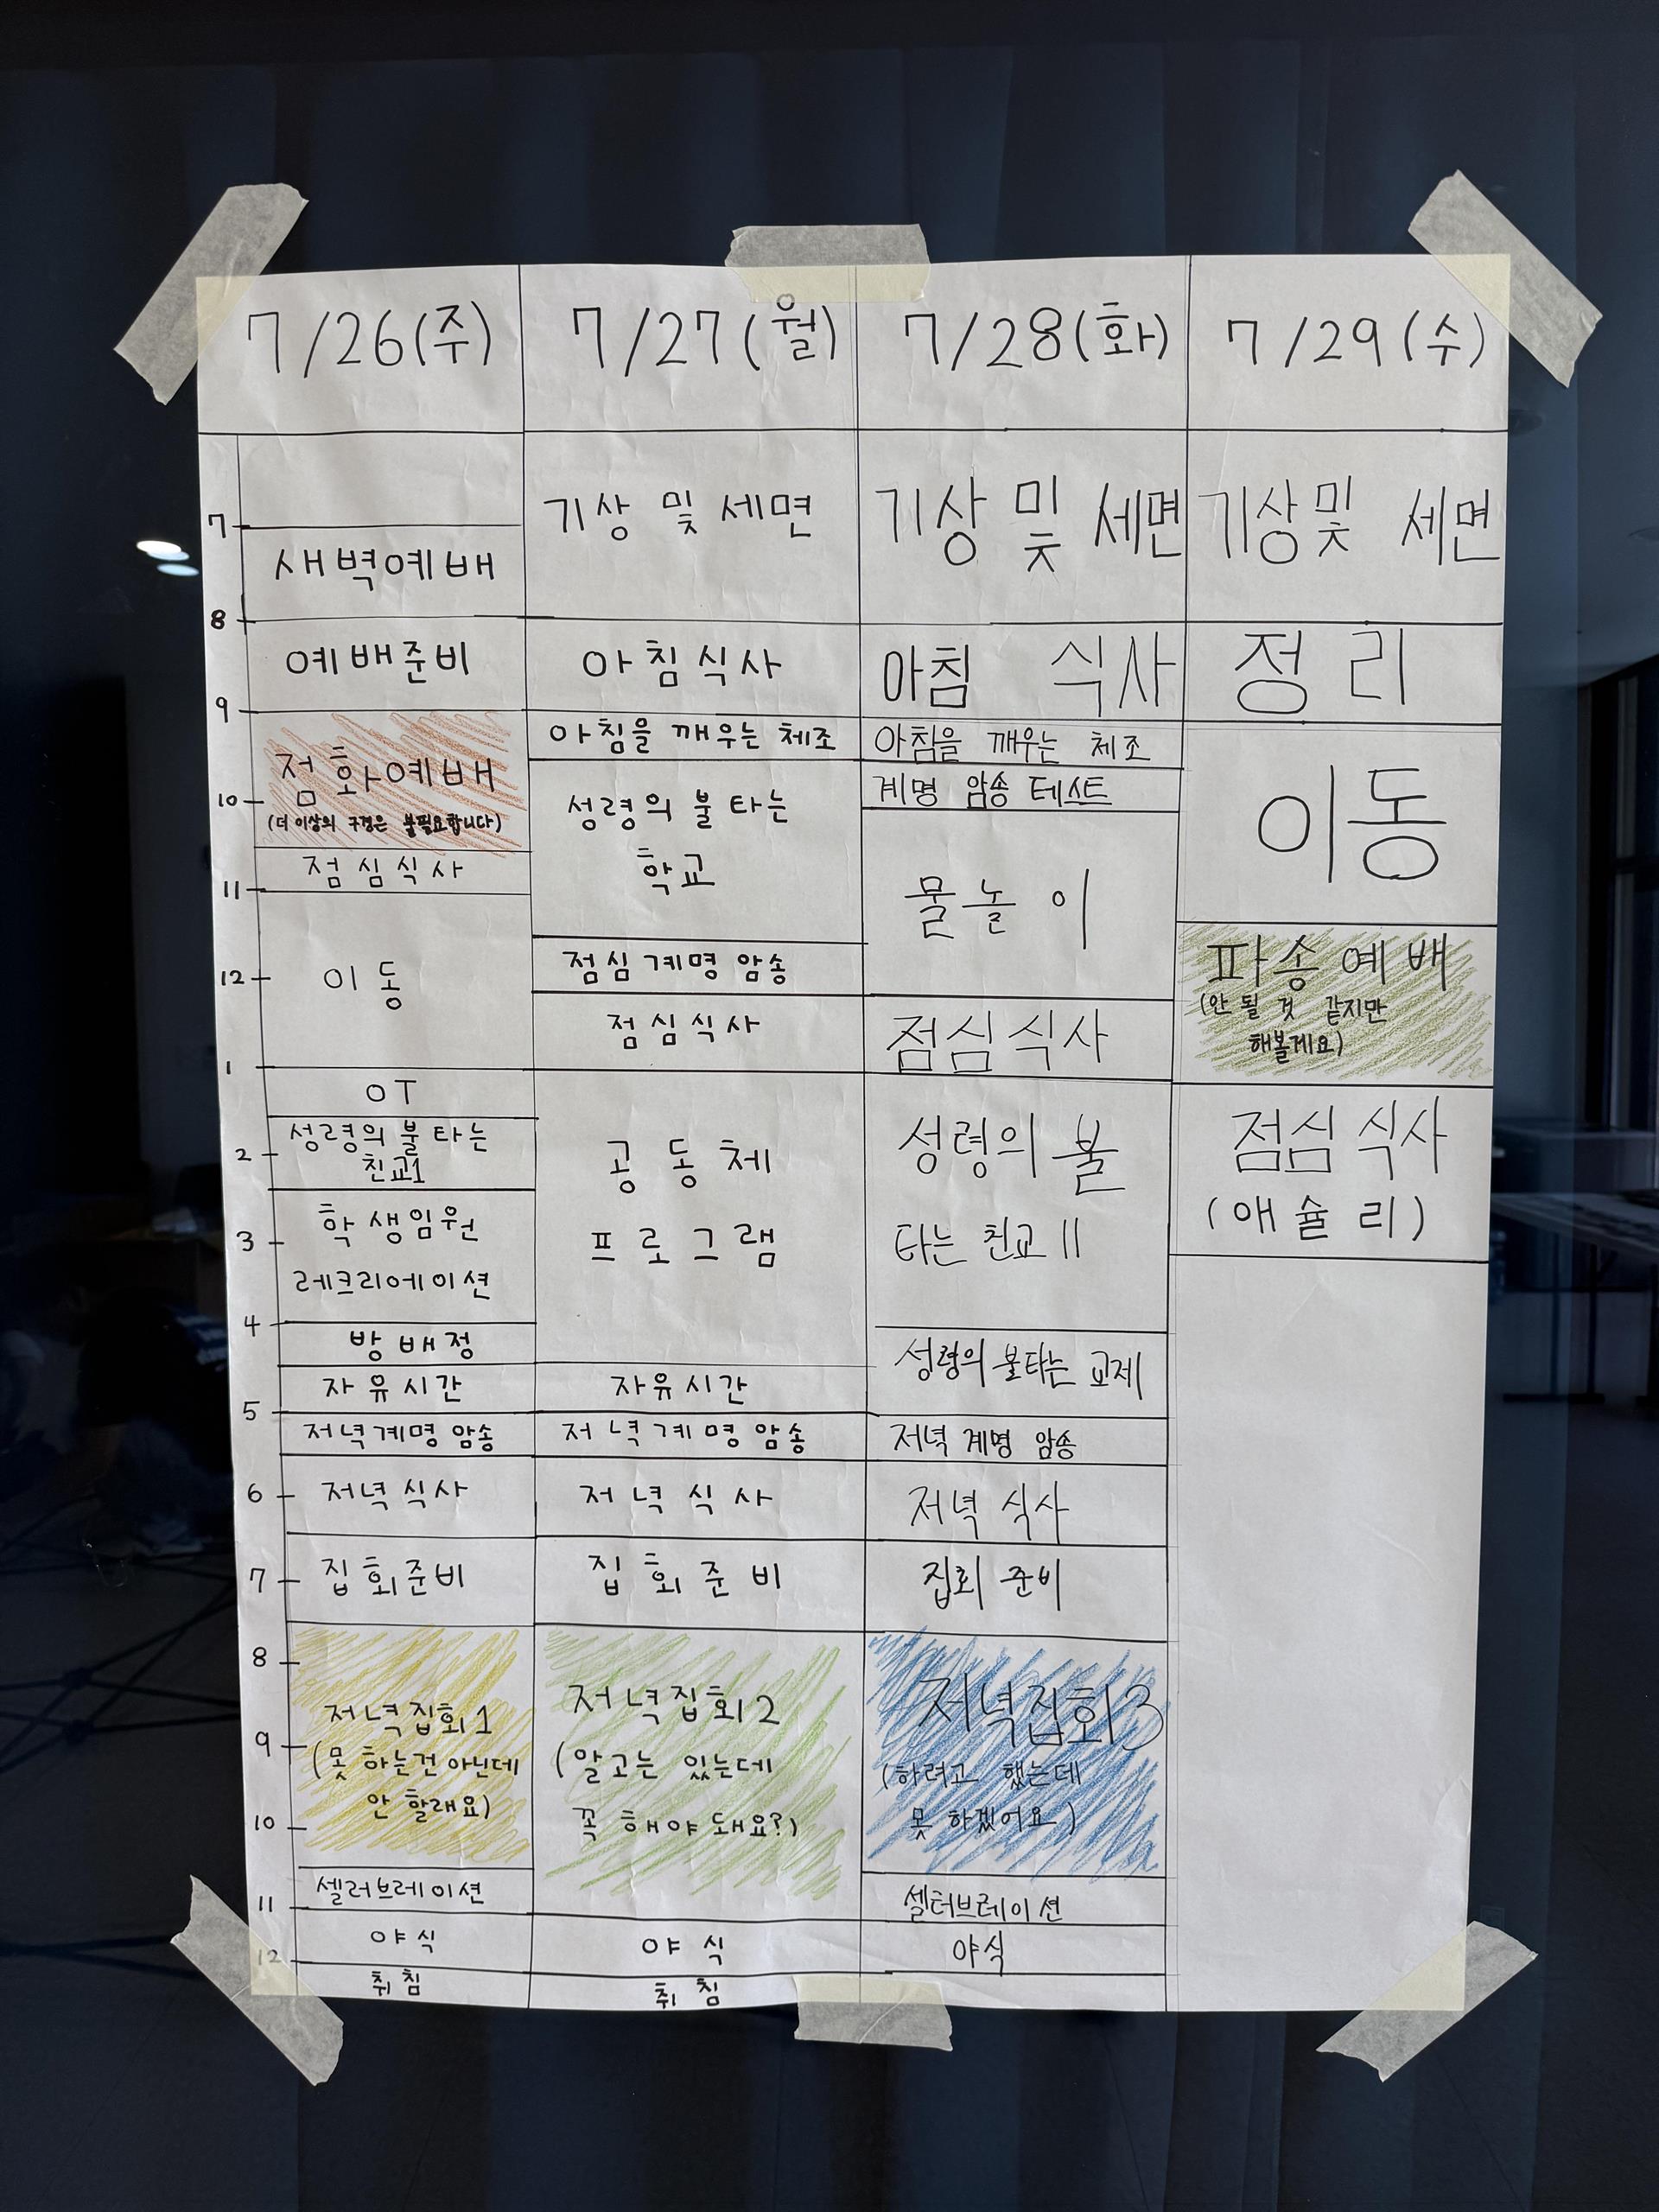 7/26(주)
7/27(월)
7/28(화)
7/29(수)
7
새벽예배
8
예배준비
9
점화예배
10
(더 이상의 구경은 불필요합니다)
점심식사
11
이동
12
1
OT
성령의 불타는
친교1
2
학생임원
3
레크리에이션
4
방배정
자유시간
5
저녁계명 암송
6
저녁식사
7
집회준비
8
저녁집회1
9
(못 하는건 아닌데
안 할래요)
10
셀러브레이션
11
야식
12
취침
기상 및 세면
아침식사
아침을 깨우는 체조
성령의 불타는
학교
점심계명 암송
점심식사
공동체
프로그램
자유시간
저녁계명 암송
저녁식사
집회준비
저녁집회2
(알고는 있는데
꼭 해야 돼요?)
야식
취침
기상 및 세면
아침 식사
아침을 깨우는 체조
계명 암송 테스트
물놀이
점심식사
성령의 불
타는 친교 II
성령의 불타는 교제
저녁 계명 암송
저녁 식사
집회 준비
저녁집회3
(하려고 했는데
못 하겠어요)
셀터브레이션
야식
기상 및 세면
정리
이동
파송예배
(안 될 것 같지만
해볼게요)
점심식사
(애슐리)